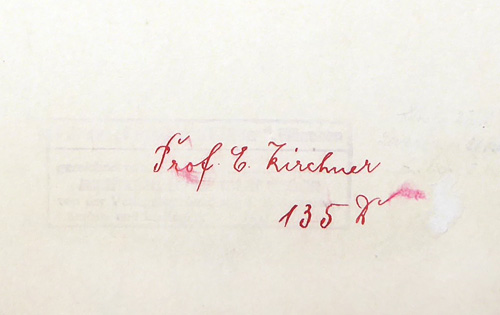 Prof. E. Kirchner
135